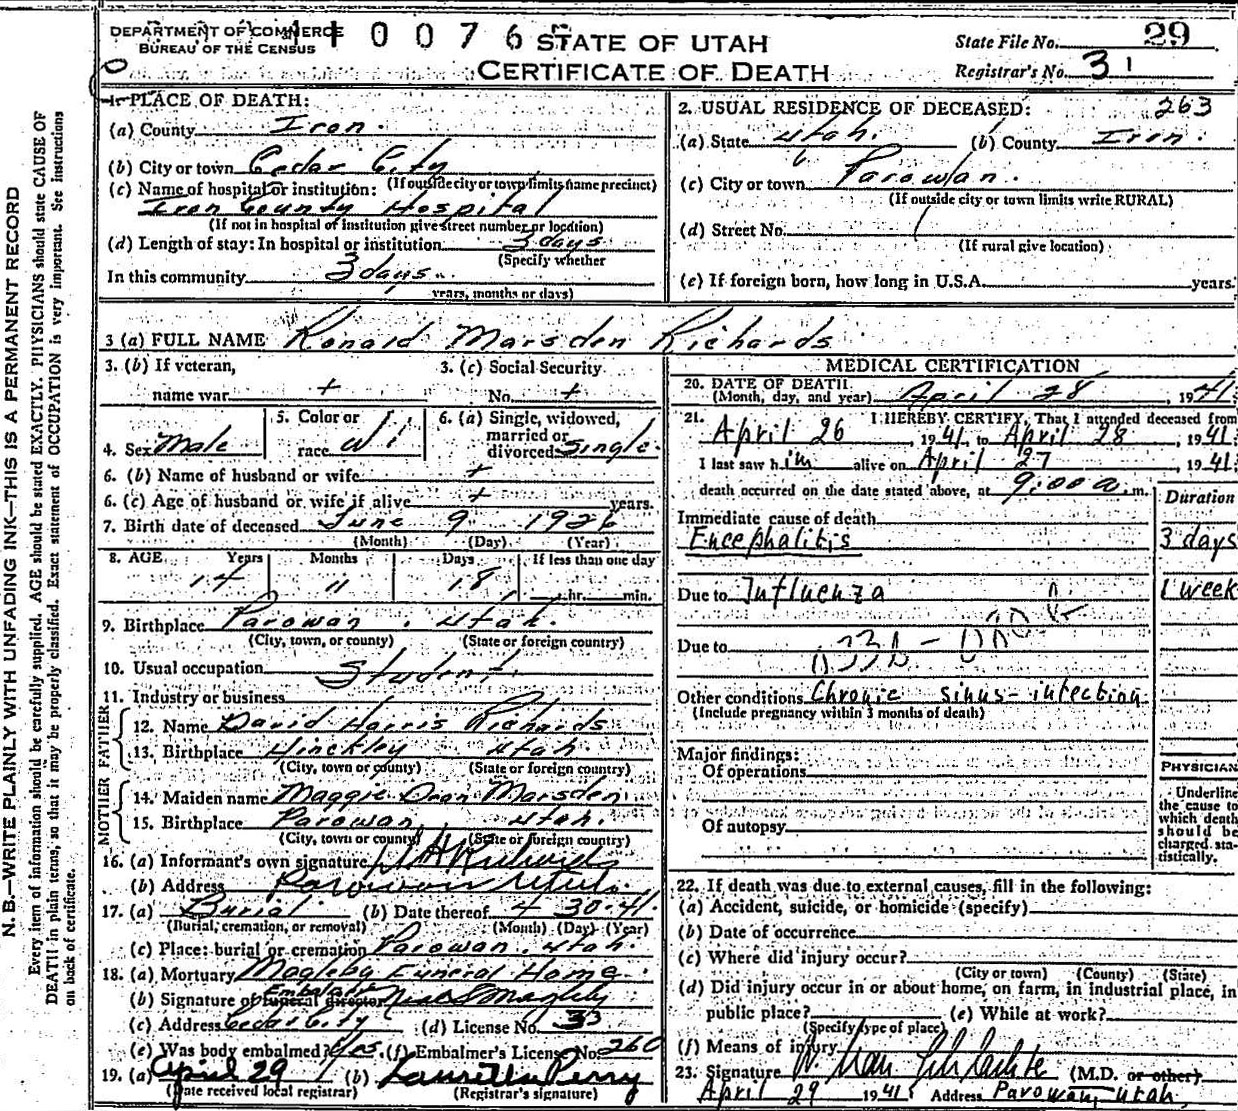 DEPARTMENT OF COMMERCE
BUREAU OF THE CENSUS
1 1 0 0 7 6
STATE OF UTAH
CERTIFICATE OF DEATH
State File No. 29
Registrar's No. 31
1. PLACE OF DEATH:
(a) County Iron.
(b) City or town Cedar City
(If outside city or town limits name precinct)
(c) Name of hospital or institution:
Iron County Hospital
(If not in hospital or institution give street number or location)
(d) Length of stay: In hospital or institution 3 days
(Specify whether
In this community 3 days.
years, months or days)
2. USUAL RESIDENCE OF DECEASED: 263
(a) State Utah. (b) County Iron.
(c) City or town Parowan.
(If outside city or town limits write RURAL)
(d) Street No.
(If rural give location)
(e) If foreign born, how long in U.S.A. years.
3 (a) FULL NAME Ronald Marsden Richards
3. (b) If veteran, name war + 3. (c) Social Security No. +
4. Sex Male 5. Color or race Wi 6. (a) Single, widowed, married or divorced Single.
6. (b) Name of husband or wife +
6. (c) Age of husband or wife if alive + years.
7. Birth date of deceased June 9 1926
(Month) (Day) (Year)
8. AGE Years Months Days If less than one day
14 11 18 hr. min.
9. Birthplace Parowan, Utah.
(City, town, or county) (State or foreign country)
10. Usual occupation Student
11. Industry or business
FATHER
12. Name David Harris Richards
13. Birthplace Hinckley Utah.
(City, town or county) (State or foreign country)
MOTHER
14. Maiden name Maggie Dean Marsden
15. Birthplace Parowan Utah.
(City, town or county) (State or foreign country)
16. (a) Informant's own signature D H Richards
(b) Address Parowan Utah.
17. (a) Burial (b) Date thereof 4 30-41
(Burial, cremation, or removal) (Month) (Day) (Year)
(c) Place: burial or cremation Parowan, Utah.
18. (a) Mortuary Magleby Funeral Home
(b) Signature of funeral director Embalmer Magleby
(c) Address Cedar City (d) License No. 33
(e) Was body embalmed? Yes. (f) Embalmer's License No. 260
19. (a) April 29 (b) Lauretta Perry
(Date received local registrar) (Registrar's signature)
MEDICAL CERTIFICATION
20. DATE OF DEATH
(Month, day, and year) April 28, 1941.
21. I HEREBY CERTIFY, That I attended deceased from
April 26, 1941, to April 28, 1941.
I last saw him alive on April 27, 1941.
death occurred on the date stated above, at 9:00 a.m.
Duration
Immediate cause of death
Encephalitis 3 days
Due to Influenza 1 week
Due to
Other conditions Chronic sinus-infection
(Include pregnancy within 3 months of death)
Major findings:
Of operations
Of autopsy
PHYSICIAN
Underline
the cause to
which death
should be
charged sta-
tistically.
22. If death was due to external causes, fill in the following:
(a) Accident, suicide, or homicide (specify)
(b) Date of occurrence
(c) Where did injury occur?
(City or town) (County) (State)
(d) Did injury occur in or about home, on farm, in industrial place, in
public place? (e) While at work?
(Specify type of place)
(f) Means of injury
23. Signature (M.D. or other)
April 29 1941 Address Parowan, Utah.
N. B.—WRITE PLAINLY WITH UNFADING INK—THIS IS A PERMANENT RECORD
Every item of information should be carefully supplied. AGE should be stated EXACTLY. PHYSICIANS should state CAUSE OF
DEATH in plain terms, so that it may be properly classified. Exact statement of OCCUPATION is very important. See instructions
on back of certificate.